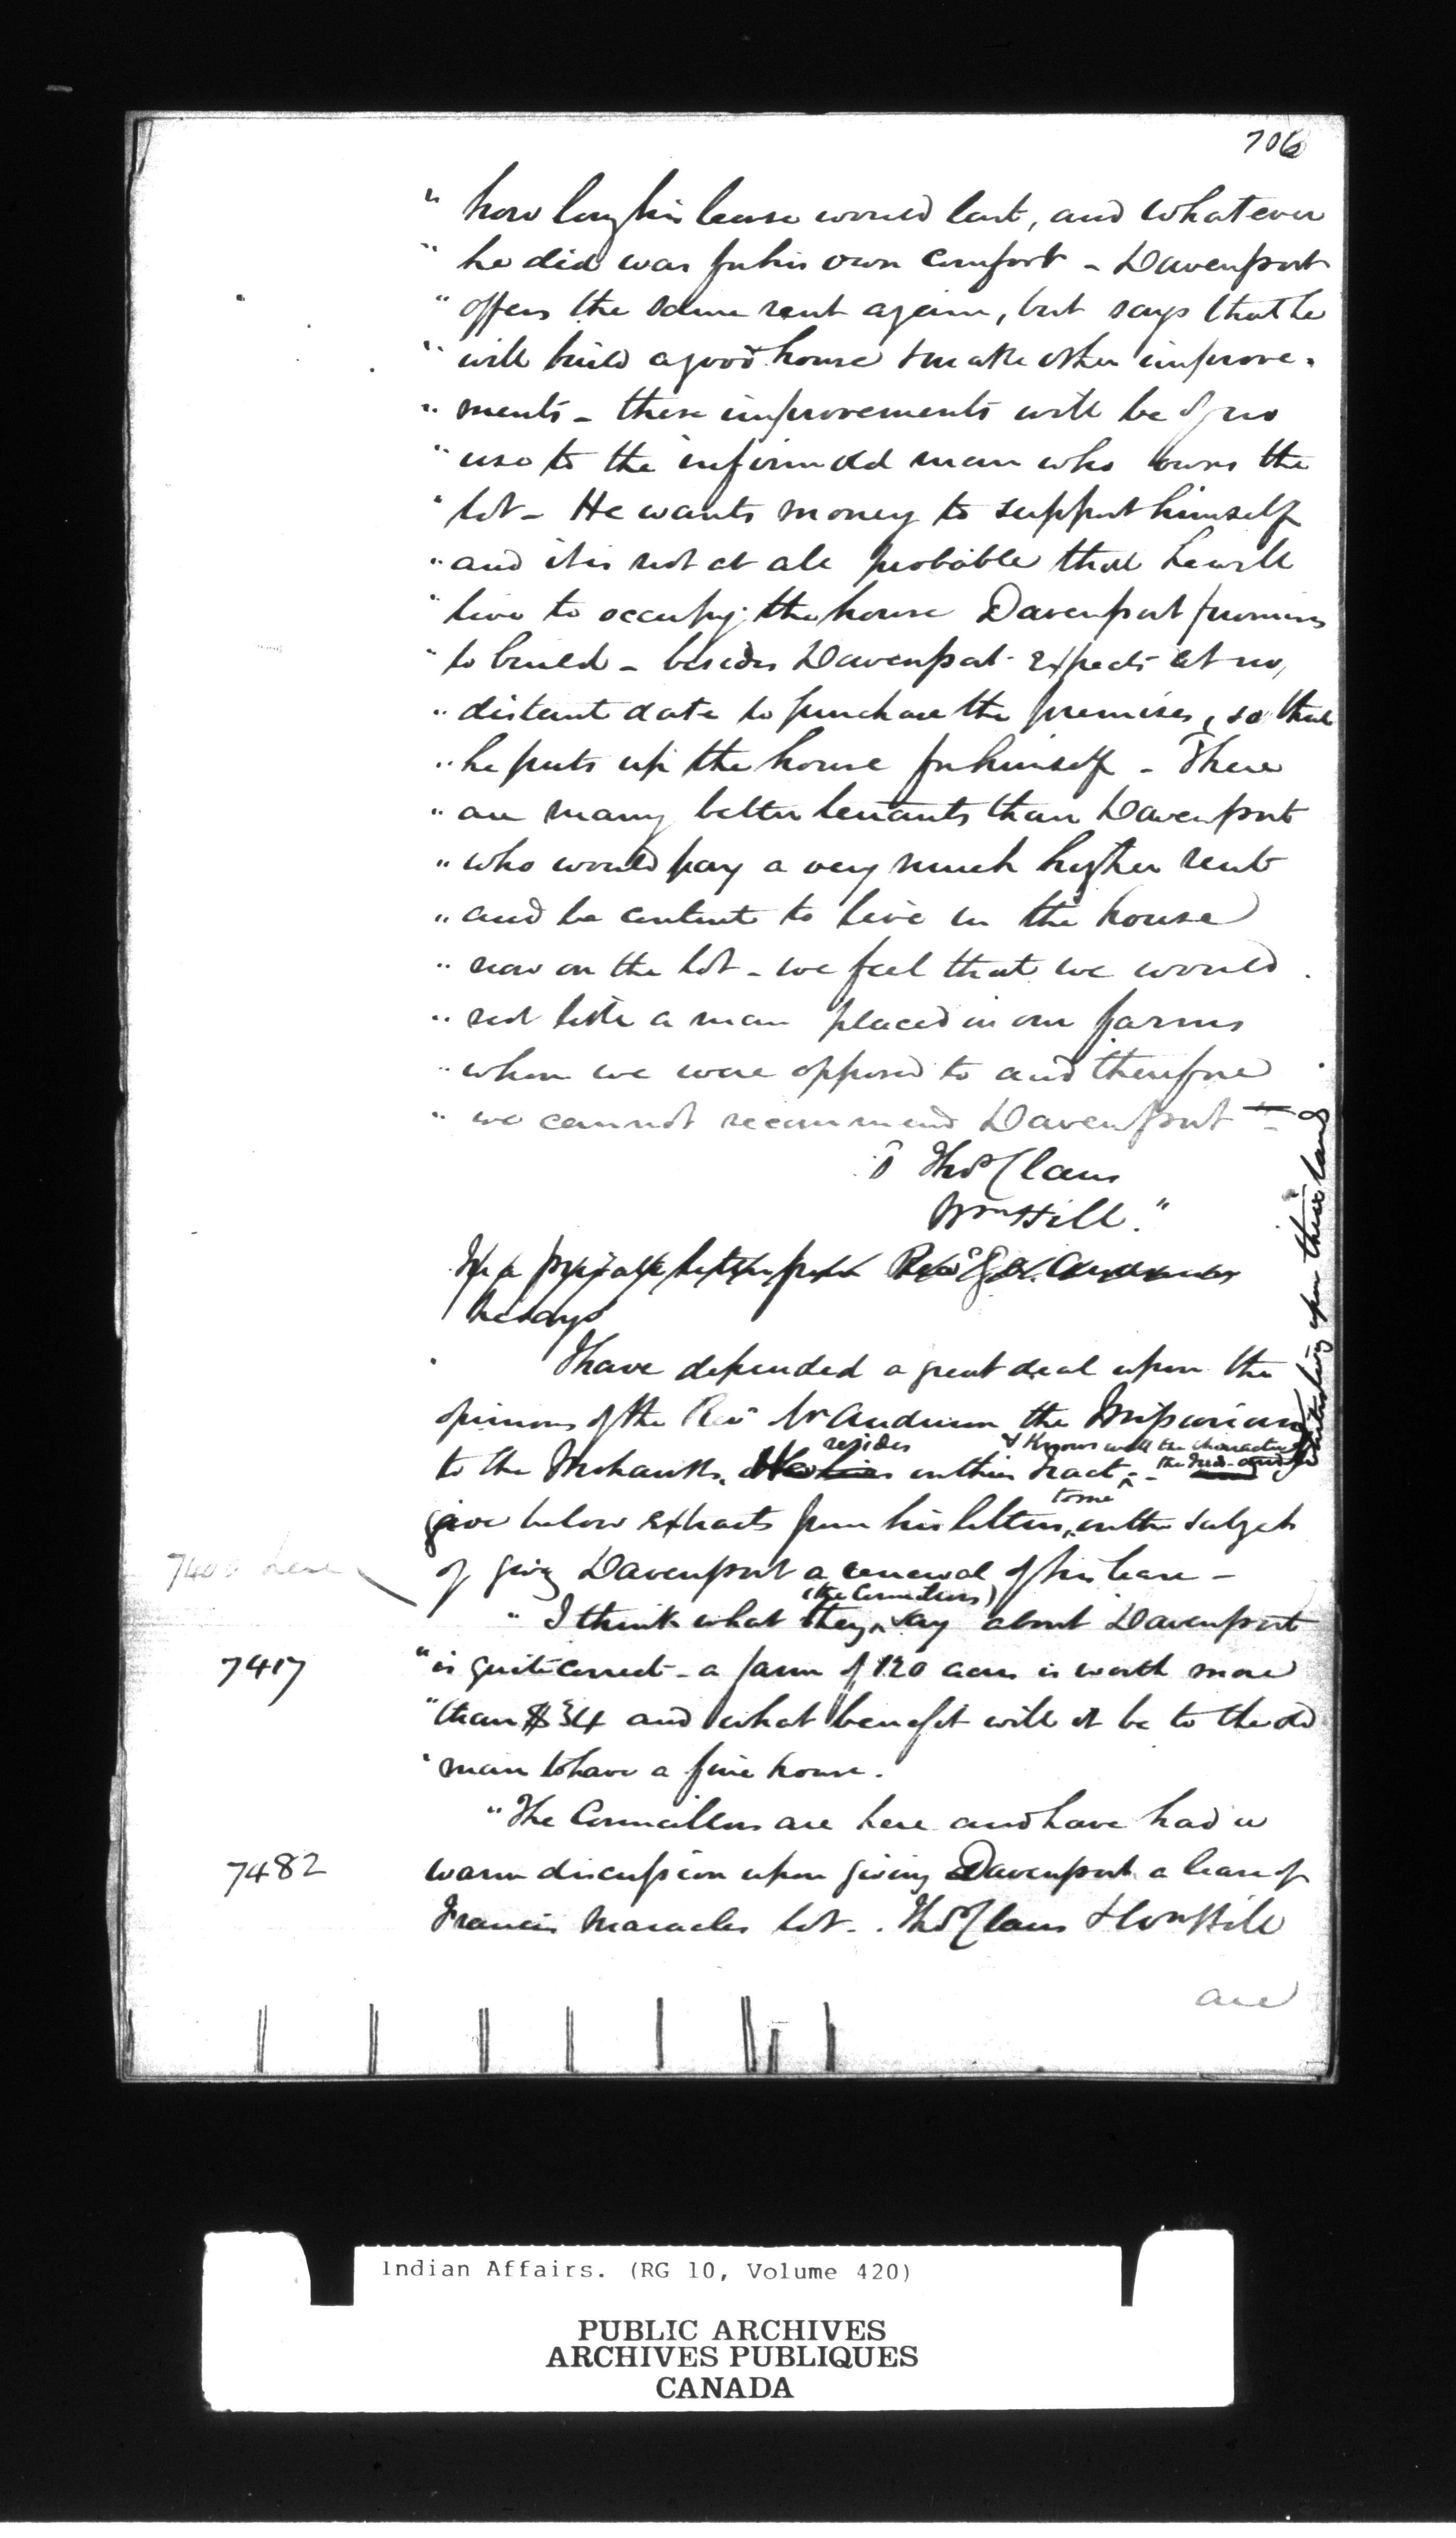 706
" how long his lease would last, and whatever
" he did was for his own comfort - Davenport
" offers the same rent again, but says that he
" will build a good house & make other improve-
" ments - these improvements will be of no
" use to the infirm old man who owns the
" lot - He wants money to support himself
" and it is not at all probable that he will
" live to occupy the house Davenport promises
" to build - besides Davenport expects at no
" distant date to purchase the premises, so that
" he puts up the house for himself - There
" are many better tenants than Davenport
" who would pay a very much higher rent
" and be content to live in the house
" now on the lot - we feel that we would
" not like a man placed in our farms
" whom we were opposed to and therefore
" we cannot recommend Davenport -
Thos Claus
Wm Hill."
In a private letter from Revd G. A. Anderson
he says
I have depended a great deal upon the
opinions of the Rev Mr Anderson the Missionary
resides & Knows well the character of
to the Mohawks. He lives on their tract - the Inds and
intruding upon their land
to me
give below extracts from his letters, on the subject
of giving Davenport a renewal of his lease -
7400 here
(the Councillors)
" I think what they say about Davenport
7417
" is quite correct - a farm of 120 acres is worth more
" than $34 and what benefit will it be to the old
" man to have a fine house.
" The Councillors are here and have had a
7482
warm discussion upon giving Davenport a lease of
Francis Maracles lot - . Thos Claus & Wm Hill
are
Indian Affairs. (RG 10, Volume 420)
PUBLIC ARCHIVES
ARCHIVES PUBLIQUES
CANADA